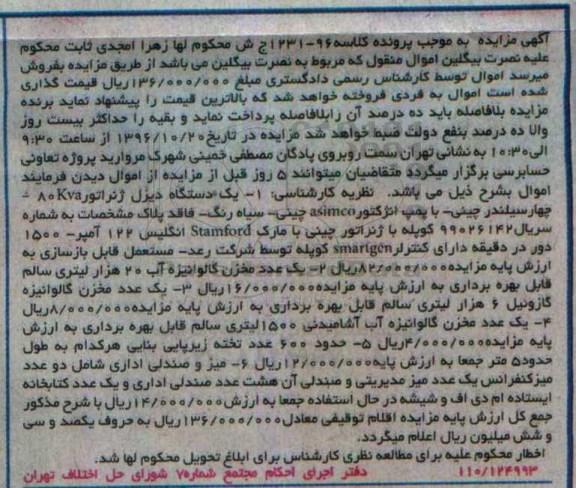 آگهی مزایده به موجب پرونده کلاسه۹۶-۱۲۳۱ج ش محکوم لها زهرا امجدی ثابت محکوم
علیه نصرت بیگلین اموال منقول که مربوط به نصرت بیگلین می باشد از طریق مزایده بفروش
میرسد اموال توسط کارشناس رسمی دادگستری مبلغ ۱۳۶/۰۰۰/۰۰۰ریال قیمت گذاری
شده است اموال به فردی فروخته خواهد شد که بالاترین قیمت را پیشنهاد نماید برنده
مزایده بلافاصله باید ده درصد آن رابلافاصله پرداخت نماید و بقیه را حداکثر بیست روز
والا ده درصد بنفع دولت ضبط خواهد شد مزایده در تاریخ۱۳۹۶/۱۰/۲۰ از ساعت ۹:۳۰
الی۱۰:۳۰ به نشانی تهران سمت روبروی پادگان مصطفی خمینی شهرک مروارید پروژه تعاونی
حسابرسی برگزار میگردد متقاضیان میتوانند ۵ روز قبل از مزایده از اموال دیدن فرمایند
اموال بشرح ذیل می باشد. نظریه کارشناسی: ۱- یک دستگاه دیزل ژنراتور۸۰Kva -
چهارسیلندر چینی- با پمپ انژکتورasimco چینی- سیاه رنگ- فاقد پلاک مشخصات به شماره
سریال۹۹۰۲۶۱۴۲ کوپله با ژنراتور چینی با مارک Stamford انگلیس ۱۲۲ آمپر- ۱۵۰۰
دور در دقیقه دارای کنترلرsmartgen کوپله توسط شرکت رعد- مستعمل قابل بازسازی به
ارزش پایه مزایده۸۲/۰۰۰/۰۰۰ریال ۲- یک عدد مخزن گالوانیزه آب ۲۰ هزار لیتری سالم
قابل بهره برداری به ارزش پایه مزایده۱۶/۰۰۰/۰۰۰ریال ۳- یک عدد مخزن گالوانیزه
گازوئیل ۶ هزار لیتری سالم قابل بهره برداری به ارزش پایه مزایده۸/۰۰۰/۰۰۰ریال
۴- یک عدد مخزن گالوانیزه آب آشامیدنی ۱۵۰۰لیتری سالم قابل بهره برداری به ارزش
پایه مزایده۴/۰۰۰/۰۰۰ریال ۵- حدود ۶۰۰ عدد تخته زیرپایی بنایی هرکدام به طول
حدود۵ متر جمعا به ارزش پایه۱۲/۰۰۰/۰۰۰ریال ۶- میز و صندلی اداری شامل دو عدد
میزکنفرانس یک عدد میز مدیریتی و صندلی آن هشت عدد صندلی اداری و یک عدد کتابخانه
ایستاده ام دی اف و شیشه در حال استفاده جمعا به ارزش۱۴/۰۰۰/۰۰۰ریال با شرح مذکور
جمع کل ارزش پایه مزایده اقلام توقیفی معادل۱۳۶/۰۰۰/۰۰۰ریال به حروف یکصد و سی
و شش میلیون ریال اعلام میگردد.
اخطار محکوم علیه برای مطالعه نظری کارشناس برای ابلاغ تحویل محکوم لها شد.
۱۱۰/۱۲۴۹۹۳ دفتر اجرای احکام مجتمع شماره۷ شورای حل اختلاف تهران